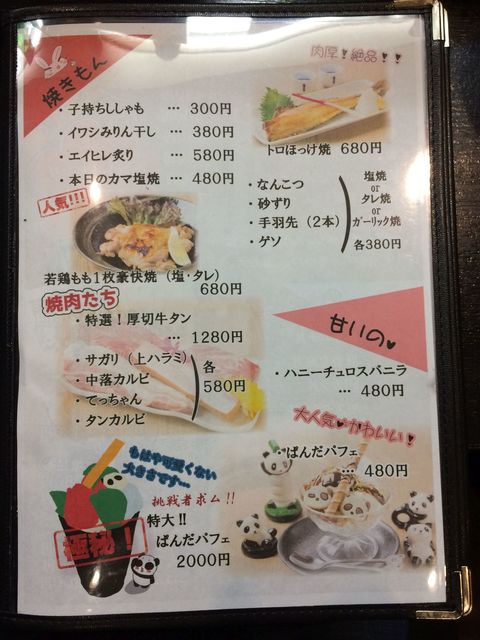 焼きもん
・子持ちししゃも … 300円
・イワシみりん干し … 380円
・エイヒレ炙り … 580円
・本日のカマ塩焼 … 480円
肉厚!絶品!!
トロほっけ焼 680円
人気!!!
若鶏もも1枚豪快焼(塩・タレ)
680円
・なんこつ
・砂ずり
・手羽先(2本)
・ゲソ
塩焼
or
タレ焼
or
ガーリック焼
各380円
焼肉たち
・特選!厚切牛タン
… 1280円
・サガリ(上ハラミ)
・中落カルビ
・てっちゃん
・タンカルビ
各
580円
甘いの♥
・ハニーチュロスバニラ
… 480円
大人気♥かわいい!
・ぱんだパフェ
… 480円
もはや可愛くない
大きさです…
挑戦者求ム!!
特大!!
ぱんだパフェ
2000円
極秘!